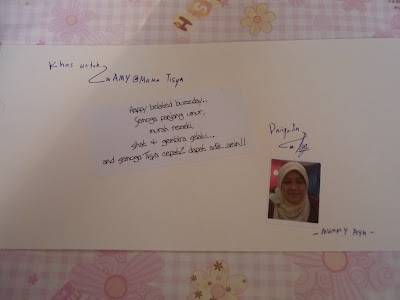 Khas untuk
AMY @ Mama Tisya
Happy belated buesday...
Semoga panjang umur,
murah rezeki,
sihat & gembira selalu...
and semoga Tisya cepat2 dapat adik...amin!!
Daripada
- MUMMY AYU -